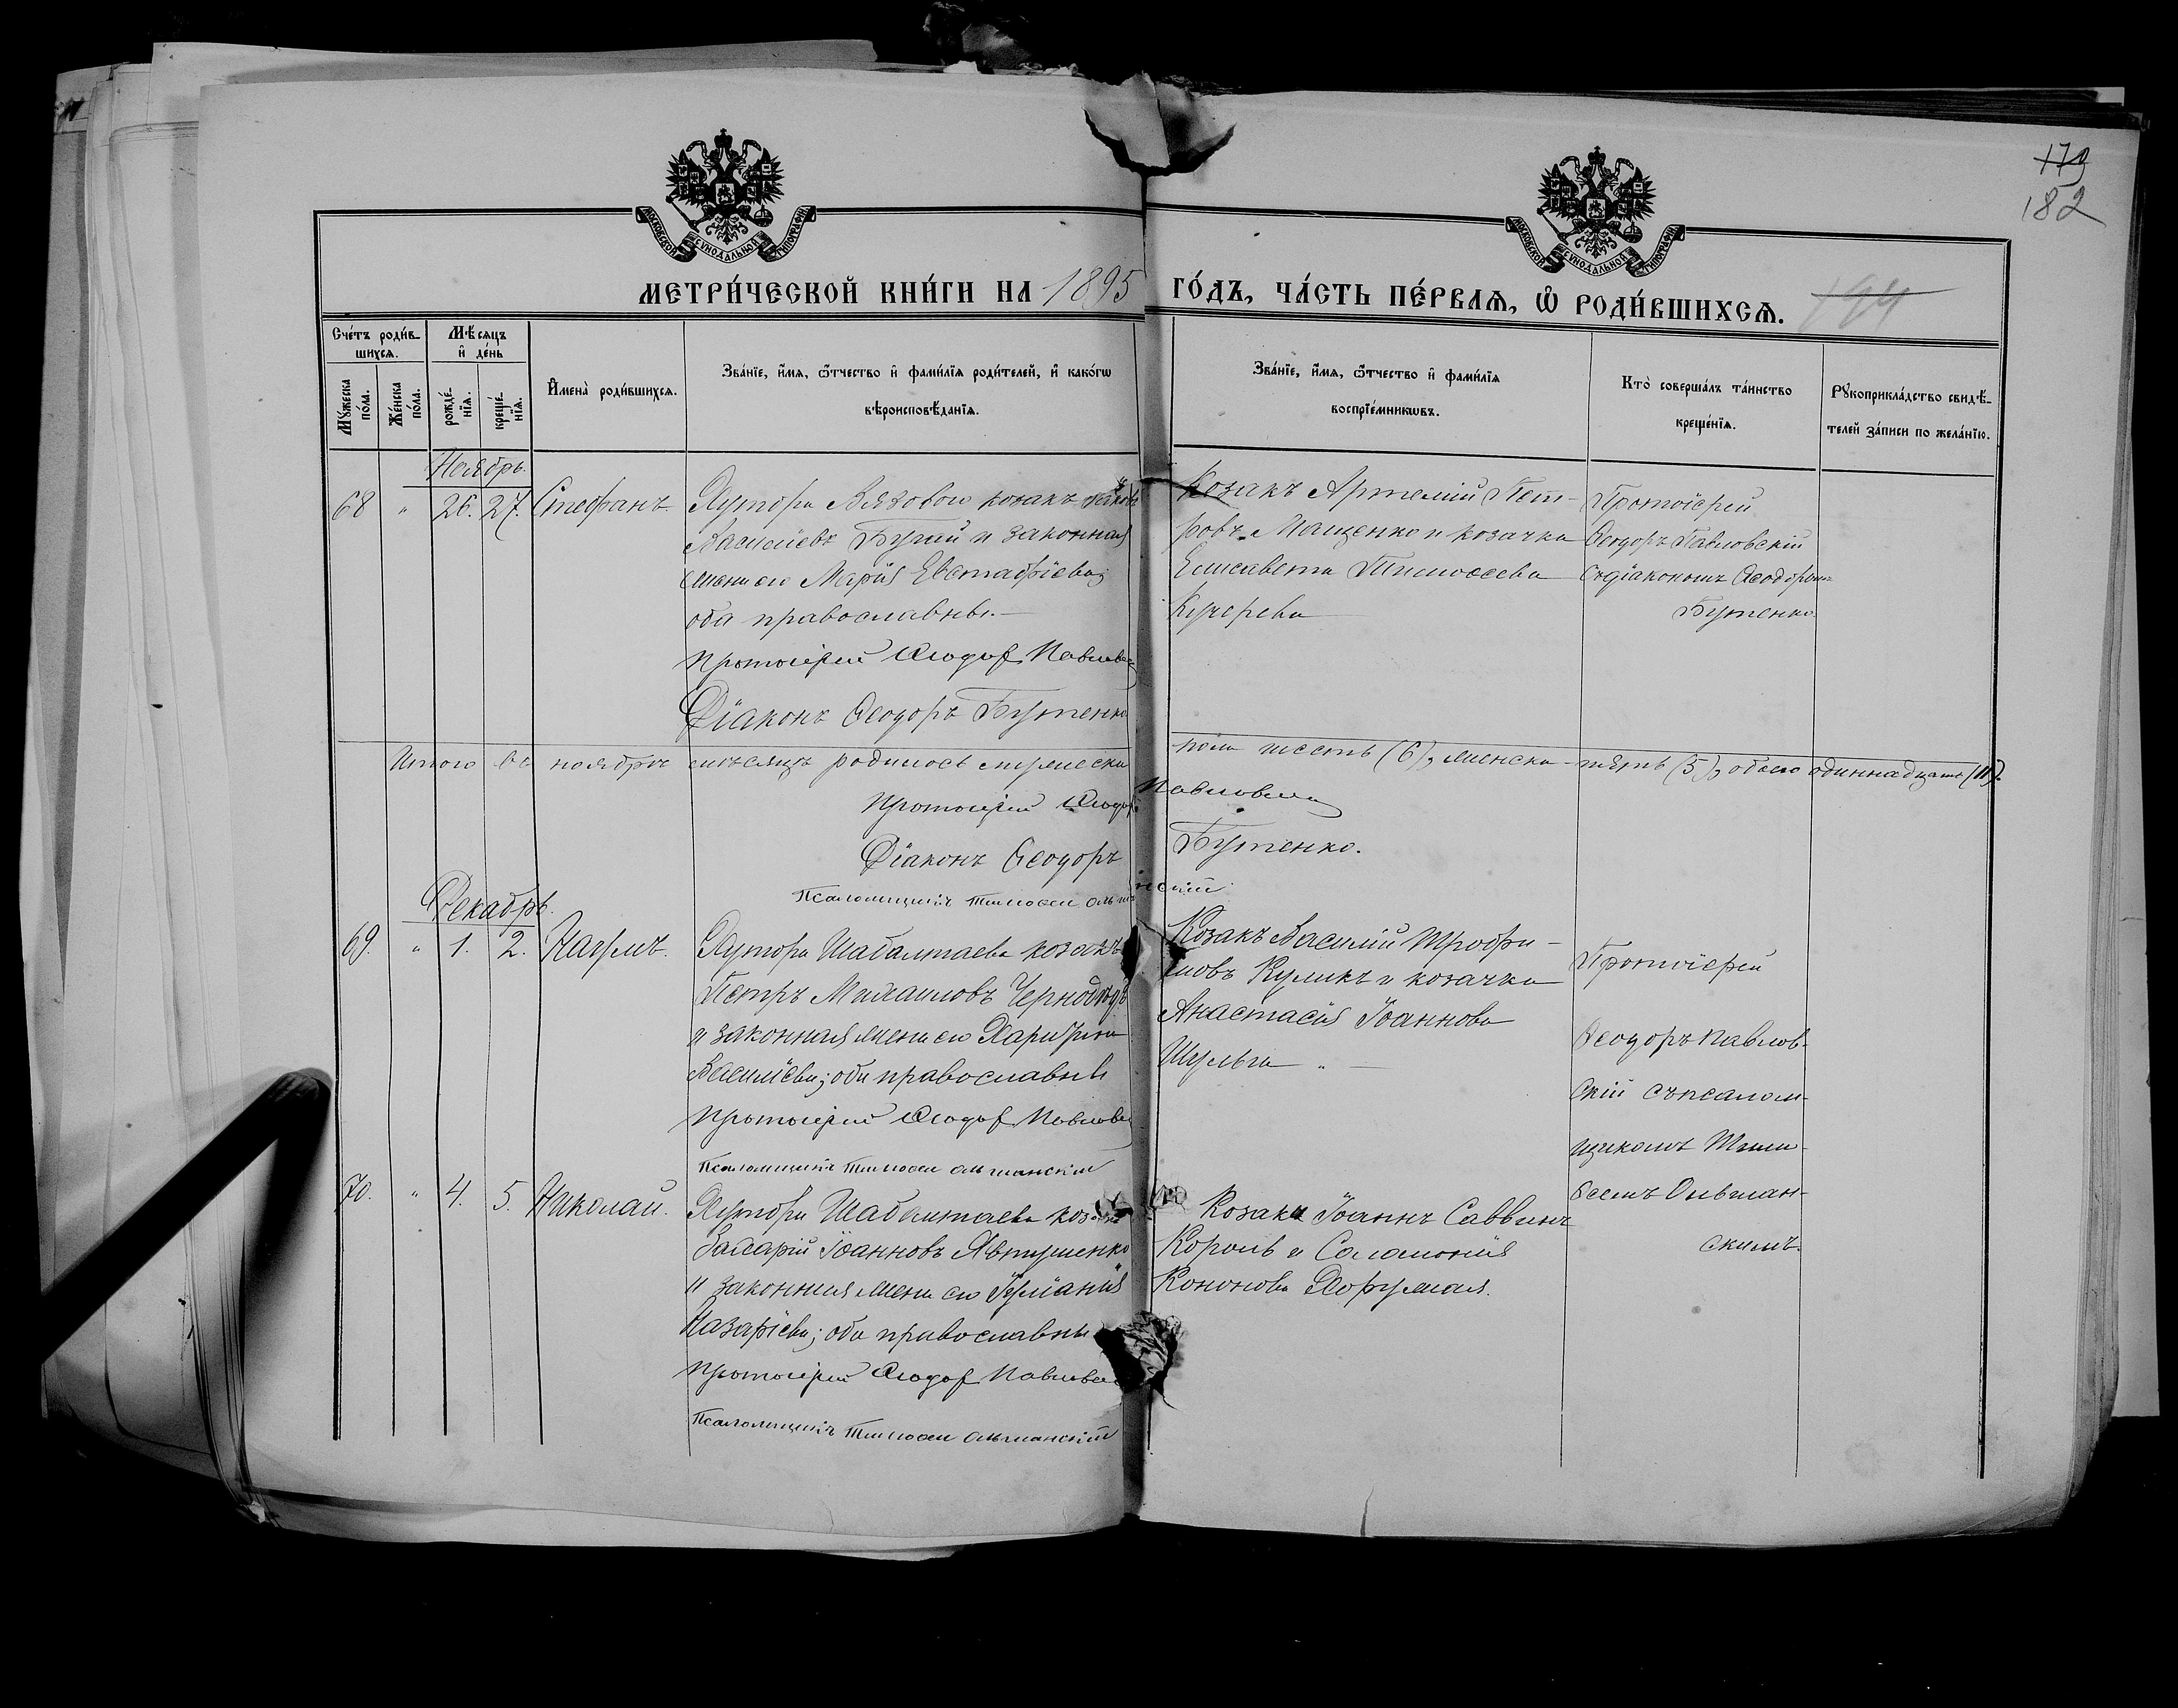 179
182
МОСКОВСКОЙ СУНОДАЛЬНОЙ ТИПОГРАФІИ
МОСКОВСКОЙ СУНОДАЛЬНОЙ ТИПОГРАФІИ
МЕТРИ́ЧЕСКОЙ КНИ́ГИ НА 1895 ГО́ДЪ, ЧА́СТЬ ПЕ́РВАѦ, Ѡ҆ РОДИ́ВШИХСѦ. 194
Сче́тъ роди́в-
шихсѧ.
Мѣ́сѧцъ
и҆ де́нь
Мꙋ́жеска
по́ла.
Же́нска
по́ла.
рожде́-
нїѧ.
креще́-
нїѧ.
И҆мена̀ роди́вшихсѧ.
Зва́нїе, и҆́мѧ, ѻ҆́тчество и҆ фами́лїѧ роди́телей, и҆ како́гѡ
вѣроисповѣ́данїѧ.
Зва́нїе, и҆́мѧ, ѻ҆́тчество и҆ фами́лїѧ
воспрїе́мникѡвъ.
Кто̀ соверша́лъ та́инство
креще́нїѧ.
Рꙋкоприкла́дство свидѣ́-
телей за́писи по жела́нїю.
Ноябрь.
68 " 26. 27. Стефанъ.
Хутора Вязоваго козакъ Іаковъ
Василіевъ Бугай и законная
жена его Марія Евстафіева;
оба православны.—
Протоіерей Ѳеодоръ Павловскій
Діаконъ Ѳеодоръ Бутенко
Козакъ Артемій Пет-
ровъ Мащенко и козачка
Елисавета Тимоѳеева
Кучерева
Протоіерей
Ѳеодоръ Павловскій
съ діакономъ Ѳеодоромъ
Бутенко.
Итого въ ноябрѣ мѣсяцѣ родилось мужеска пола шесть (6), женска - пять (5), обоего одиннадцать (11).
Протоіерей Ѳеодоръ Павловскій
Діаконъ Ѳеодоръ Бутенко.
Псаломщикъ Тимоѳей Ольшанскій.
Декабрь.
69. " 1. 2. Наумъ.
Хутора Шабалтаева козакъ
Петръ Михаиловъ Чернодѣдъ
и законная жена его Харитина
Василіева; оба православны
Протоіерей Ѳеодоръ Павловскій
Псаломщикъ Тимоѳей Ольшанскій
Козакъ Василій Трофи-
мовъ Куликъ и козачка
Анастасія Іоаннова
Шульга " —
Протоіерей
Ѳеодоръ Павлов-
скій съ псалом-
щикомъ Тимо-
ѳеемъ Ольшан-
скимъ.
70. " 4. 5. Николай.
Хутора Шабалтаева козакъ
Захарій Іоанновъ Явтушенко
и законная жена его Іуліанія
Назаріева; оба православны
Протоіерей Ѳеодоръ Павловскій
Псаломщикъ Тимоѳей Ольшанскій
Козаки Іоаннъ Саввинъ
Король и Саломонія
Кононова Хоружая.